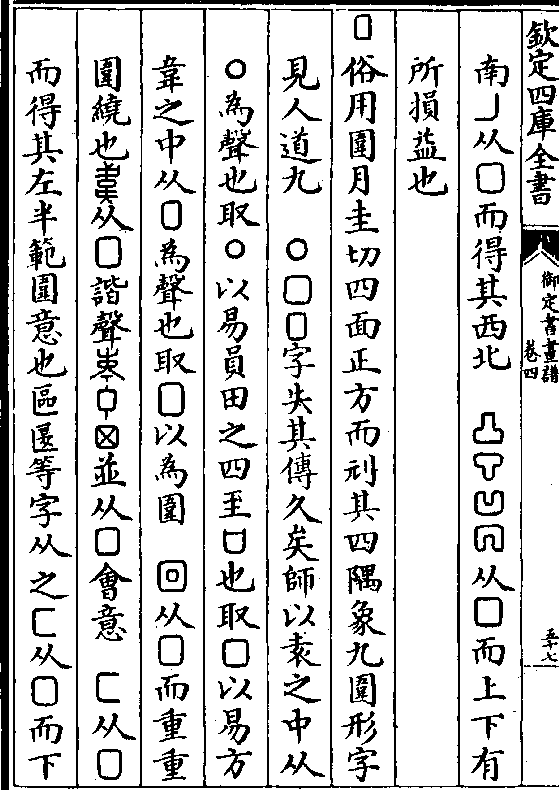 欽定四庫全書
御定書畫譜
卷四
五十七
南亅从囗而得其西北 凸 凹 从囗而上下有
所損益也
囗俗用圍月圭切四面正方而刓其四隅象九圍形字
見人道九 ○囗囗字失其傳久矣師以袁之中从
○為聲也取○以易員田之四至囗也取囗以易方
韋之中从囗為聲也取囗以為圍 回从囗而重重
圍繞也 从囗諧聲 並从囗會意 匚从囗
而得其左半範圍意也區匽等字从之匚从囗而下